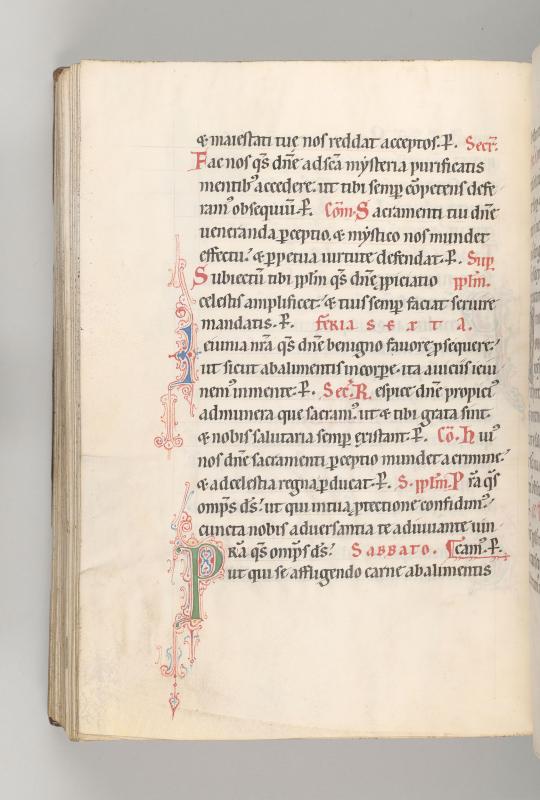 & maiestati tue nos reddat acceptos. P. Secr̄.
Fac nos q̄s dn̄e ad sc̄a mẏsteria purificatis
mentib' accedere: ut tibi semp̱ cōpetens defe
ram' obsequiū. P. Cōm. Sacramenti tui dn̄e
ueneranda p̱ceptio, & mẏstico nos mundet
effectu: & p̱petua uirtute defendat. P. Sup̱
Subiectū tibi pp̄lm q̄s dn̄e p̱piciatio pp̄lm.
celestis amplificet: & tuis semp̱ faciat seruire
mandatis. P. FERIA SEXTA.
Ieiunia nr̄a q̄s dn̄e benigno fauore p̱sequere:
ut sicut ab alimentis in corp̱e. ita a uiciis ieiu
nem' in mente. P. Secr̄. Respice dn̄e propici'
ad munera que sacram'. ut & tibi grata sint
& nobis salutaria semp̱ existant. P. Cō. Hui'
nos dn̄e sacramenti p̱ceptio mundet a crimine:
& ad celestia regna p̱ducat. P. S. pp̄lm. Pr̄a q̄s
omp̄s ds̄: ut qui in tua p̱tectione confidim':
cuncta nobis aduersantia te adiuuante uin
PRĀ q̄s omp̄s ds̄: SABBATO. cam'. P.
ut qui se affligendo carnē ab alimentis